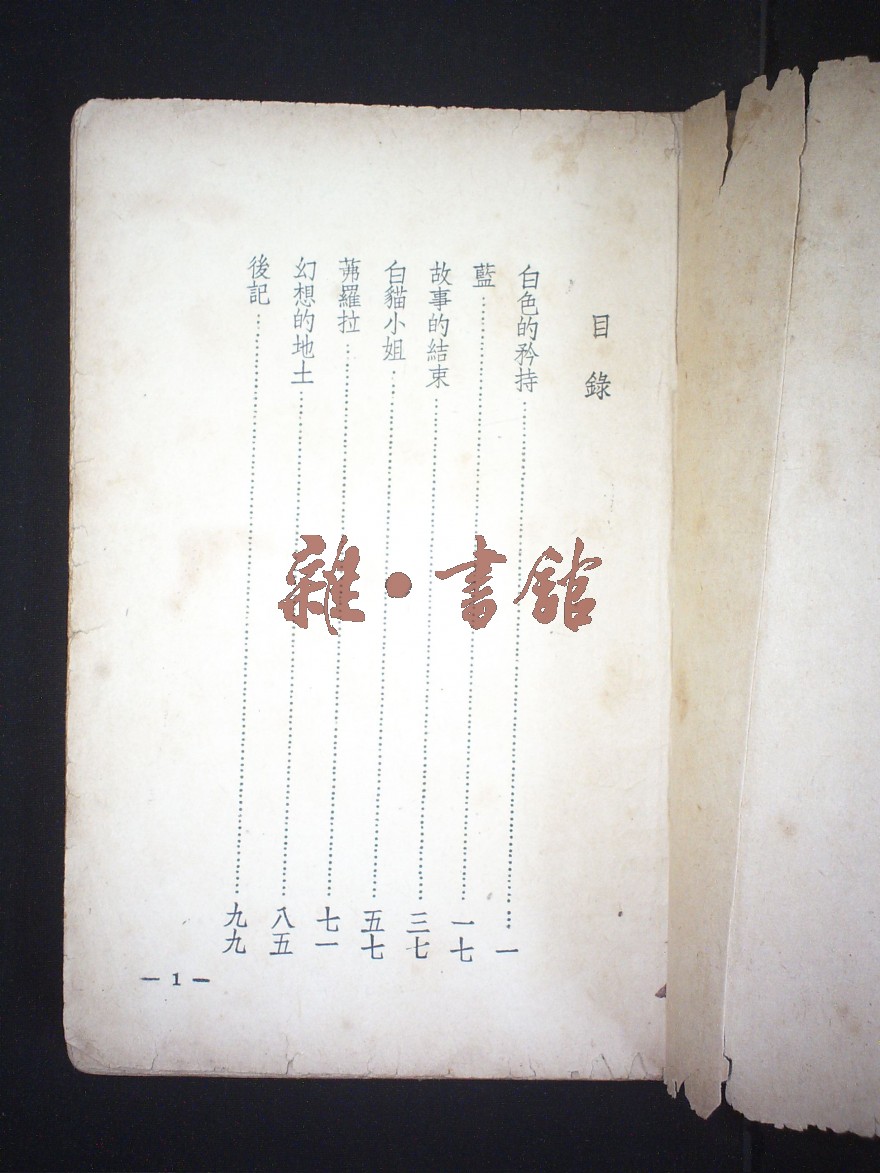 目錄
白色的矜持……一
藍……一七
故事的結束……三七
白貓小姐……五七
茀羅拉……七一
幻想的地土……八五
後記……九九
— 1 —
雜·書館